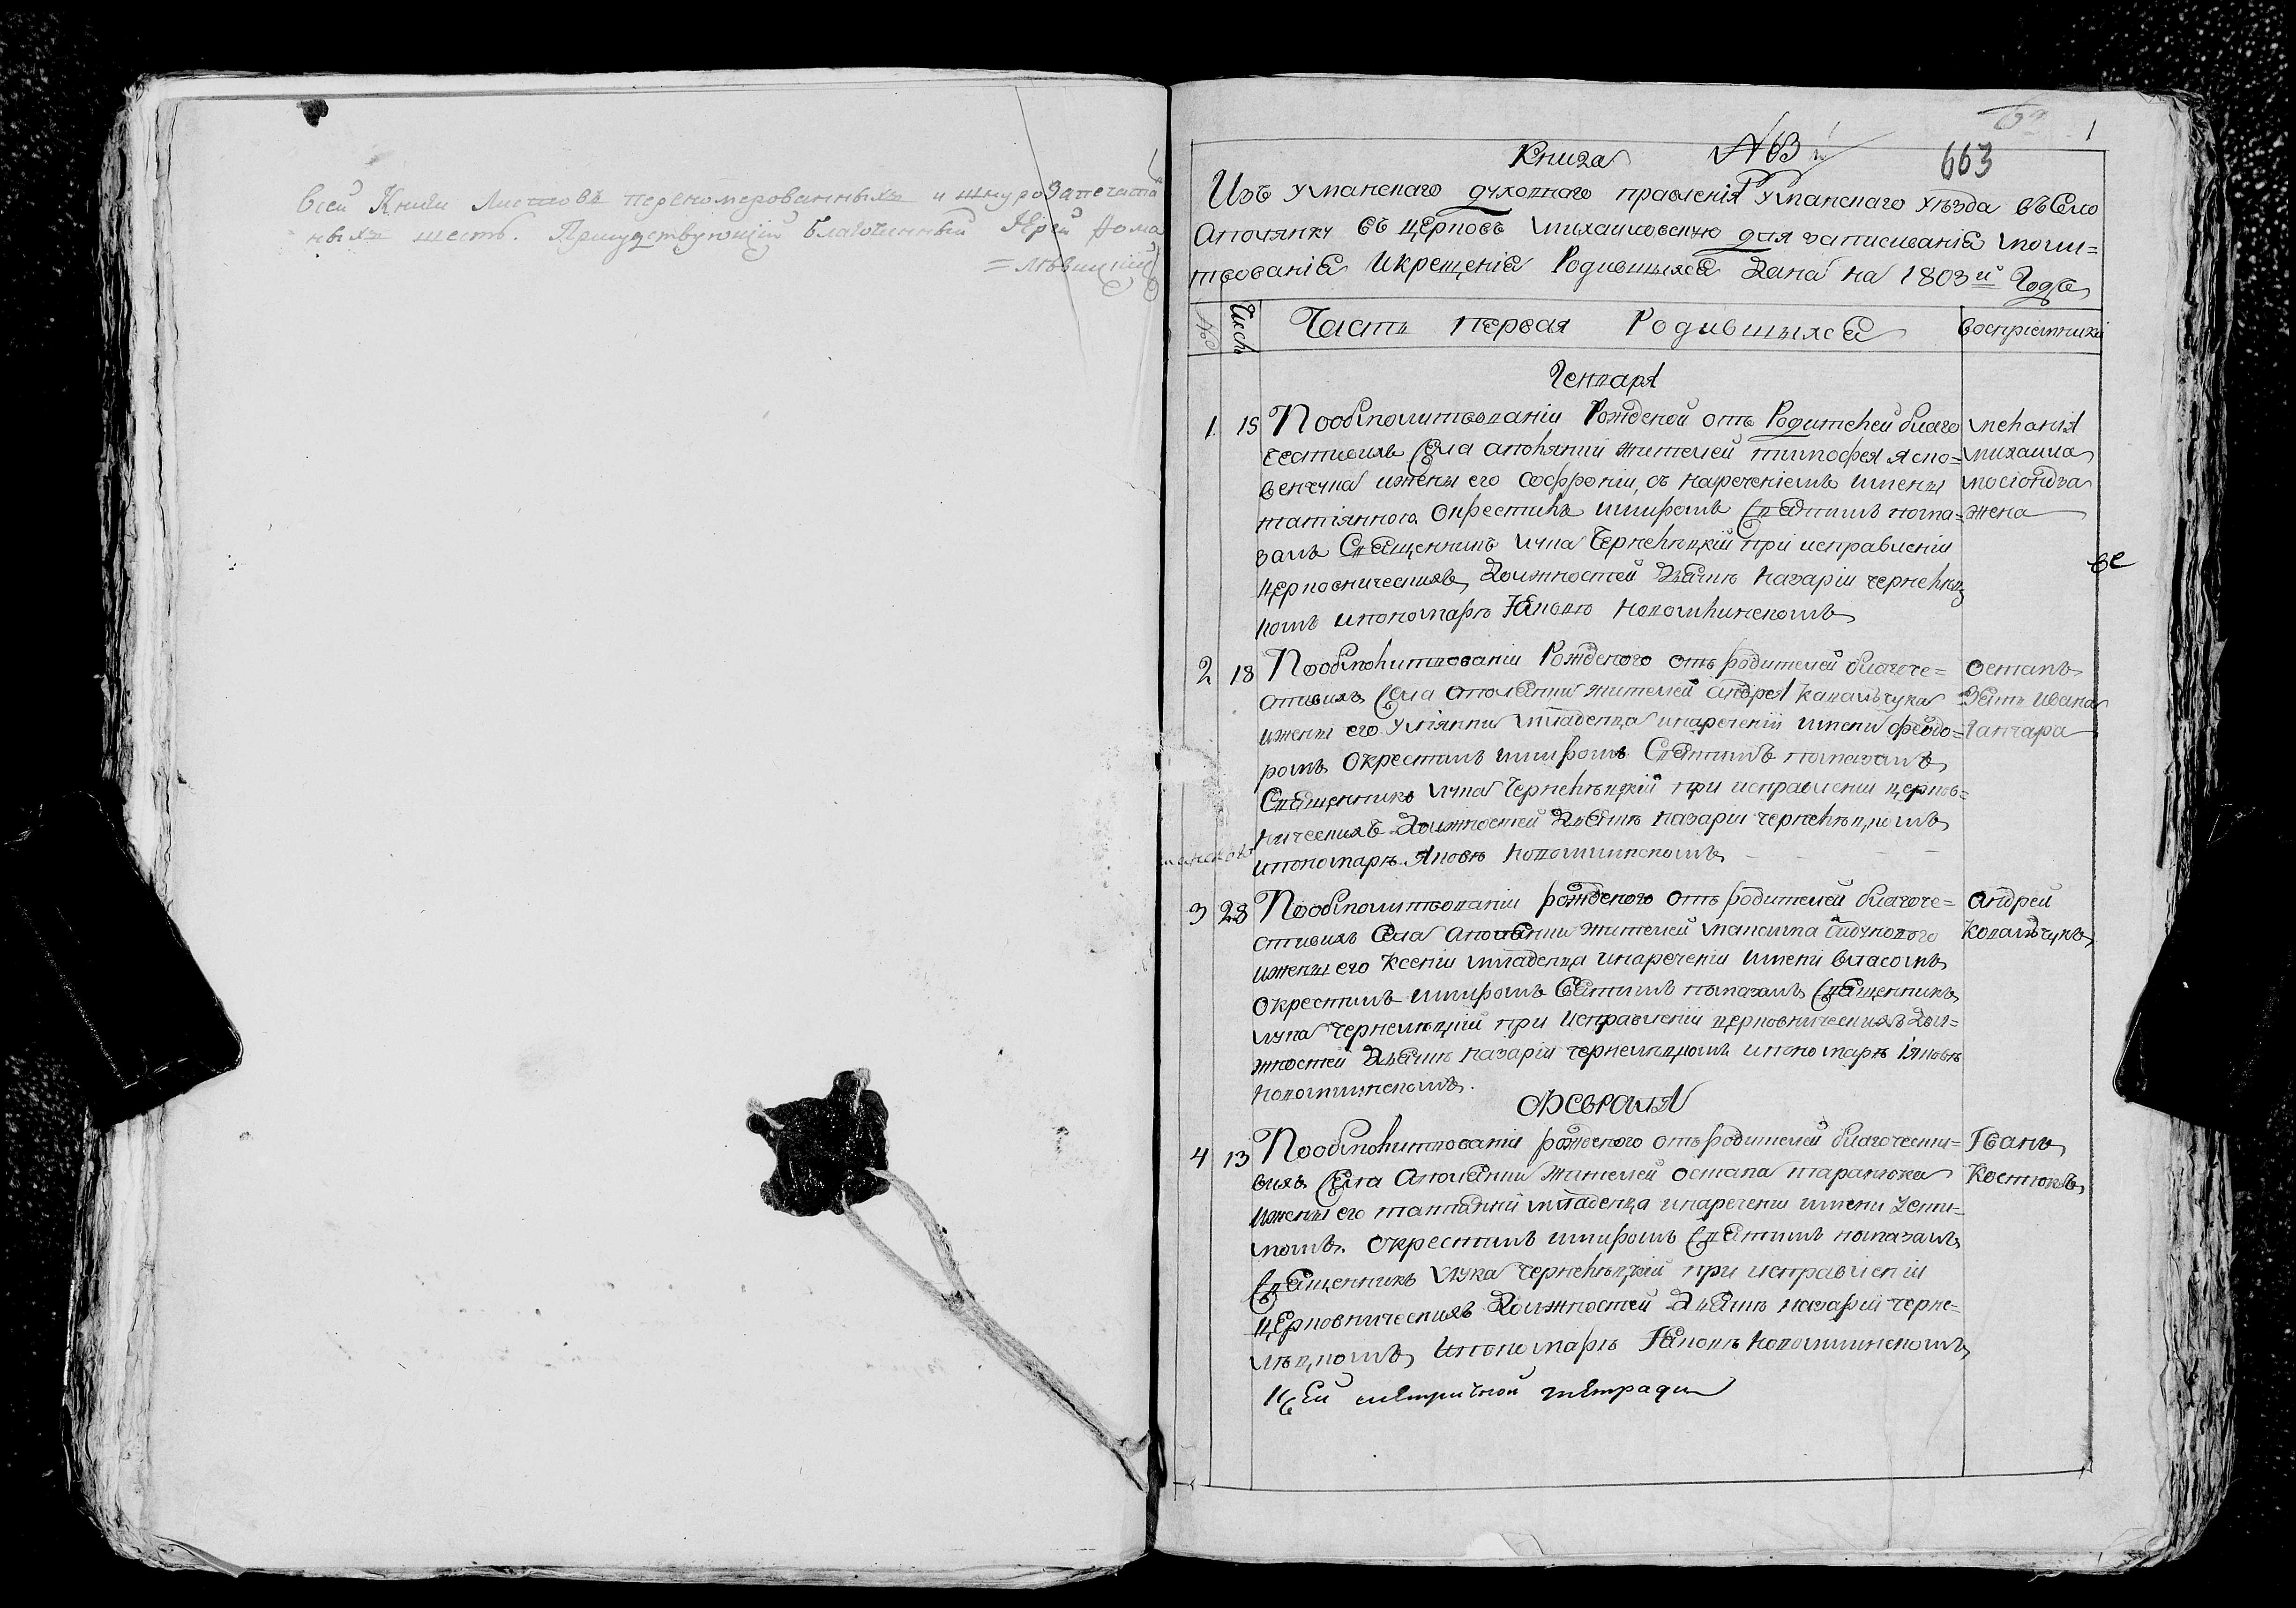 всей Книги Листовъ перенумерованныхъ и шнурозапечата
ныхъ шесть. Присудствующій Благочинный Іерей Фома
=Львицкій
1
663
Книга №63
Изъ Уманскаго духовнаго правленія Уманскаго уѣзда въ Село
Аполянку въ церковь Михаиловскую для записиванія моли=
твованія и крещенія Родившихся Дана на 1803й Годъ
Число
Часть первая Родившихся
воспріемники
Генваря
1. 15 По обмолитвованіи Рожденой отъ Родителей благо
честивихъ Села Аполянки жителей тимофея яско=
венчука и жены его Софроніи, съ нареченіемъ имены
татіянною. Окрестилъ и миромъ Святимъ пома=
залъ Священникъ Лука Чернелѣцкій при исправленіи
церковническихъ Должностей Дьячкѣ Назаріи чернелѣц
комъ и пономарѣ Яковѣ Коломийскомъ
меланія
михаила
мосіондза
жена
ве
2 18 По обмолитвованіи Рожденого отъ родителей благоче=
стивихъ Села Аполянки жителей андрея Ковальчука
и жены его Уліянки младенца и нареченіи имени феодо=
ромъ Окрестилъ и миромъ Святимъ помазалъ
Священникъ Лука Чернелѣцкій при исправленіи церков=
ническихъ Должностей Дьячкѣ Назаріи чернелѣцкомъ
и пономарѣ Яковѣ Коломийскомъ
остапъ
Зять Ивана
Ганчара
3 28 По обмолитвованіи рожденого отъ родителей благоче=
стивихъ Села Аполянки жителей максима
и жены его Ксеніи младенца и нареченіи имени власомъ
Окрестилъ и миромъ Святимъ помазалъ Священникъ
Лука Чернелѣцкій при исправленіи церковническихъ Дол=
жностей Дьячкѣ Назаріи чернелѣцкомъ и пономарѣ Іяковѣ
Коломийскомъ.
андрей
Ковальчукъ
Февраля
4 13 По обмолитвованіи рожденого отъ родителей благочести=
вихъ Села Аполянки жителей остапа таранюка
и жены его младенца и нареченіи имени
Окрестилъ и миромъ Святимъ помазалъ
Священникъ Лука Чернелѣцкій при исправленіи
церковническихъ Должностей Дьячкѣ Назаріи черне=
лѣцкомъ и пономарѣ Яковѣ Коломийскомъ
Іванъ
Костюкъ
Къ Сей метричной тетради